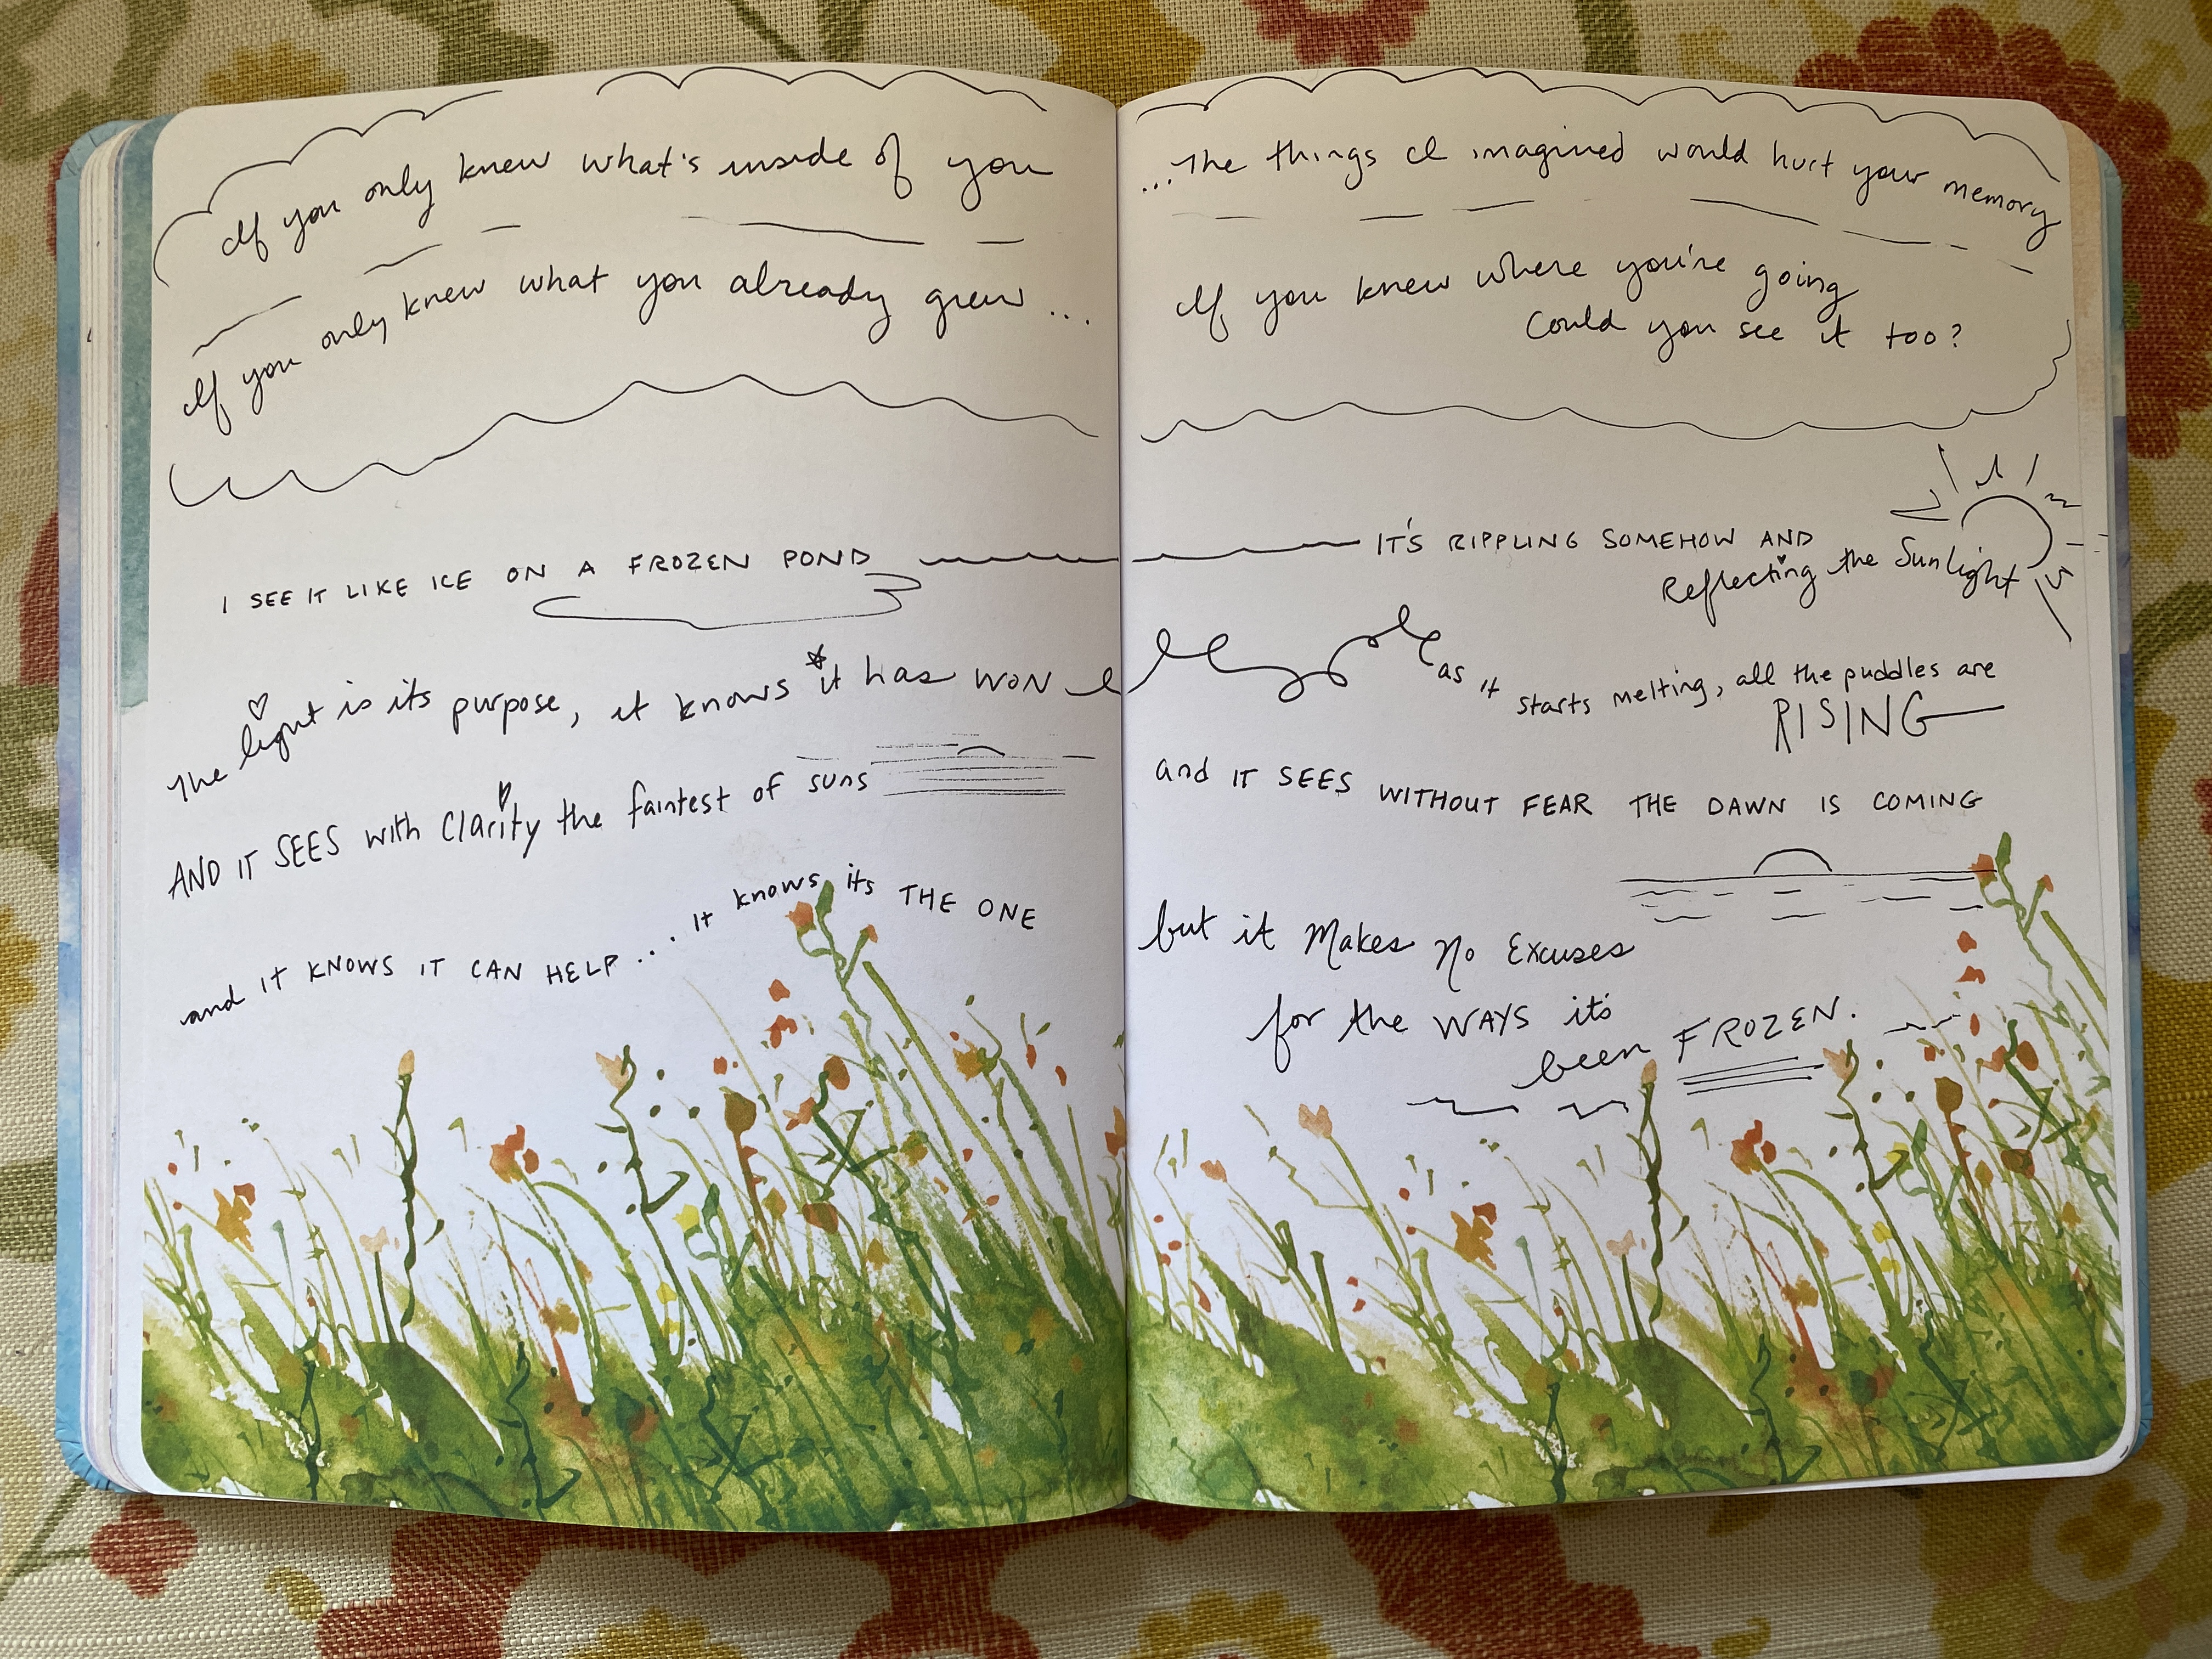 If you only knew what's inside of you
If you only knew what you already grew...
I SEE IT LIKE ICE ON A FROZEN POND
The light is its purpose, it knows it has WON
AND IT SEES with Clarity the faintest of suns
and IT KNOWS IT CAN HELP... It knows its THE ONE
...The things I imagined would hurt your memory
If you knew where you're going
Could you see it too?
IT'S RIPPLING SOMEHOW AND
Reflecting the Sunlight
as it starts melting, all the puddles are
RISING
and IT SEES WITHOUT FEAR THE DAWN IS COMING
but it Makes No Excuses
for the WAYS it's
been FROZEN.